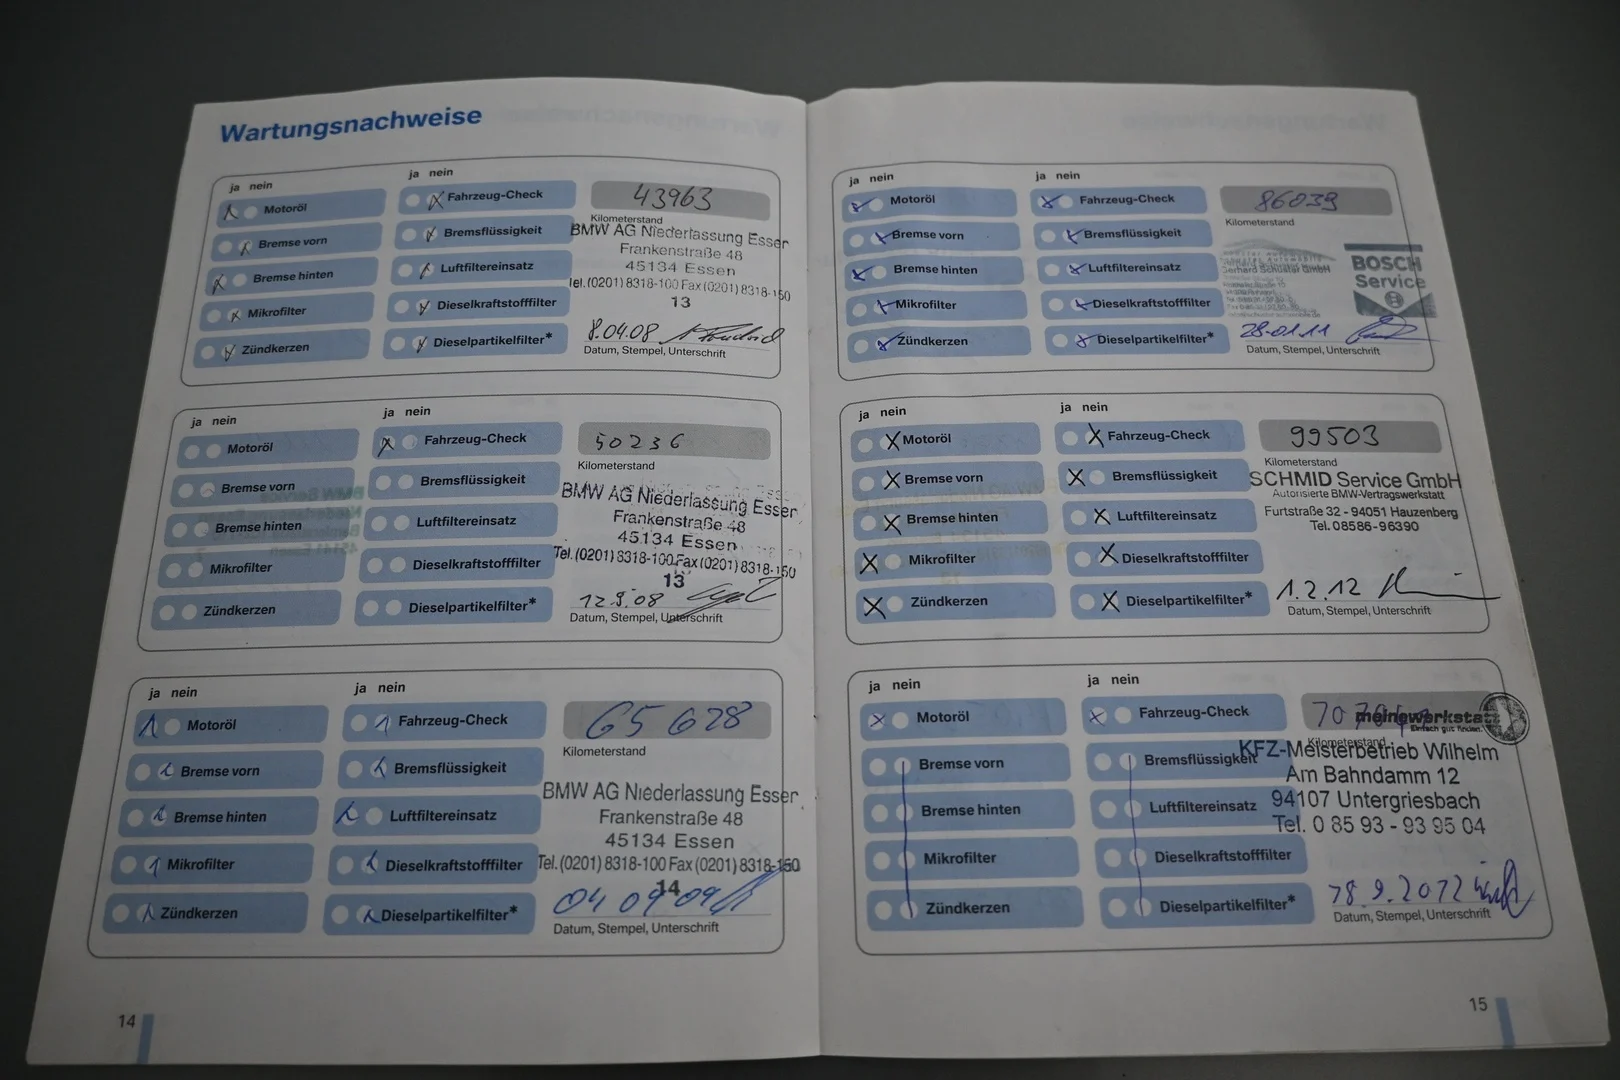 Wartungsnachweise
ja nein
ja nein
Motoröl
Fahrzeug-Check
43963
Kilometerstand
Bremse vorn
Bremsflüssigkeit
BMW AG Niederlassung Essen
Frankenstraße 48
Bremse hinten
Luftfiltereinsatz
45134 Essen
Tel.(0201) 8318-100 Fax (0201) 8318-150
Mikrofilter
Dieselkraftstofffilter
13
Zündkerzen
Dieselpartikelfilter*
8.04.08
Datum, Stempel, Unterschrift
ja nein
ja nein
Motoröl
Fahrzeug-Check
50236
Kilometerstand
Bremse vorn
Bremsflüssigkeit
BMW AG Niederlassung Essen
Frankenstraße 48
Bremse hinten
Luftfiltereinsatz
45134 Essen
Tel.(0201) 8318-100 Fax (0201) 8318-150
Mikrofilter
Dieselkraftstofffilter
13
Zündkerzen
Dieselpartikelfilter*
12.9.08
Datum, Stempel, Unterschrift
ja nein
ja nein
Motoröl
Fahrzeug-Check
65628
Kilometerstand
Bremse vorn
Bremsflüssigkeit
BMW AG Niederlassung Essen
Bremse hinten
Luftfiltereinsatz
Frankenstraße 48
45134 Essen
Mikrofilter
Dieselkraftstofffilter
Tel.(0201) 8318-100 Fax (0201) 8318-150
14
Zündkerzen
Dieselpartikelfilter*
04 09 09
Datum, Stempel, Unterschrift
14
ja nein
ja nein
Motoröl
Fahrzeug-Check
86039
Kilometerstand
Bremse vorn
Bremsflüssigkeit
Bremse hinten
Luftfiltereinsatz
Gerhard Schuster GmbH
BOSCH
Service
Mikrofilter
Dieselkraftstofffilter
Zündkerzen
Dieselpartikelfilter*
28.01.11
Datum, Stempel, Unterschrift
ja nein
ja nein
Motoröl
Fahrzeug-Check
99503
Kilometerstand
Bremse vorn
Bremsflüssigkeit
SCHMID Service GmbH
Autorisierte BMW-Vertragswerkstatt
Bremse hinten
Luftfiltereinsatz
Furtstraße 32 - 94051 Hauzenberg
Tel. 08586-96390
Mikrofilter
Dieselkraftstofffilter
Zündkerzen
Dieselpartikelfilter*
1.2.12
Datum, Stempel, Unterschrift
ja nein
ja nein
Motoröl
Fahrzeug-Check
meinewerkstatt
Einfach gut finden.
Kilometerstand
Bremse vorn
Bremsflüssigkeit
KFZ-Meisterbetrieb Wilhelm
Am Bahndamm 12
Bremse hinten
Luftfiltereinsatz
94107 Untergriesbach
Tel. 0 85 93 - 93 95 04
Mikrofilter
Dieselkraftstofffilter
Zündkerzen
Dieselpartikelfilter*
18.9.2012
Datum, Stempel, Unterschrift
15